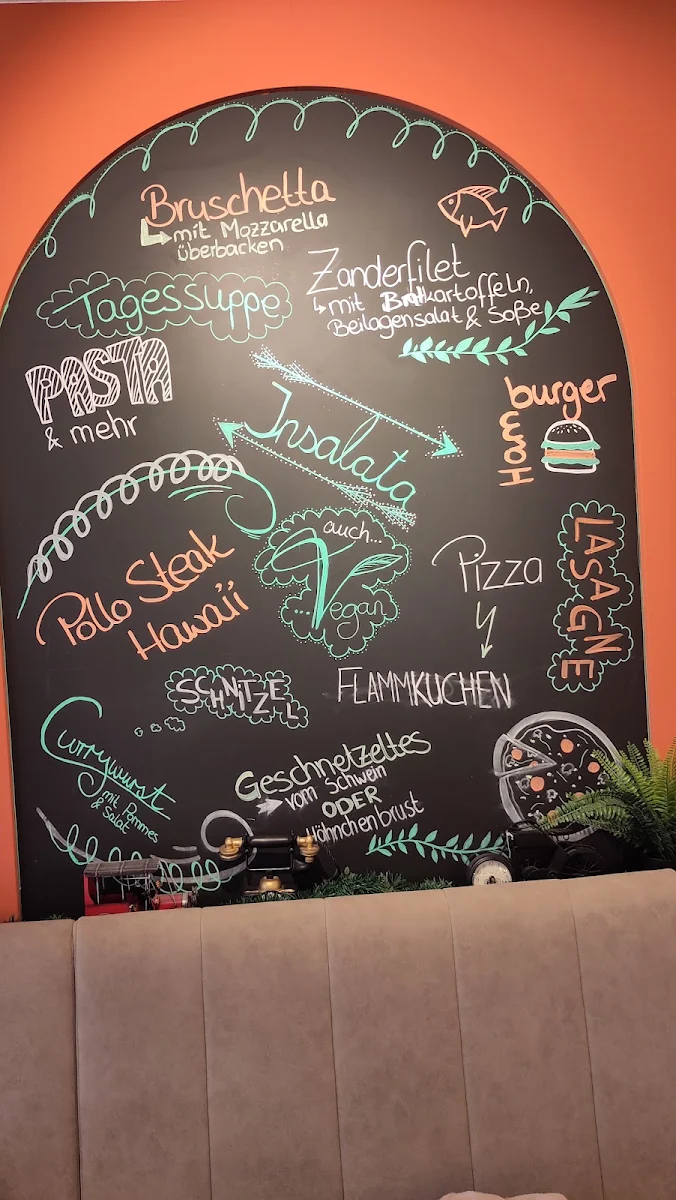 Bruschetta
mit Mozzarella
überbacken
Zanderfilet
mit Bratkartoffeln,
Beilagensalat & Soße
Tagessuppe
PASTA
& mehr
Insalata
burger
Ham
auch...
...Vegan
Pollo Steak
Hawaii
Pizza
LASAGNE
SCHNITZEL
FLAMMKUCHEN
Currywurst
mit Pommes
& Salat
Geschnetzeltes
vom Schwein
ODER
Hähnchenbrust